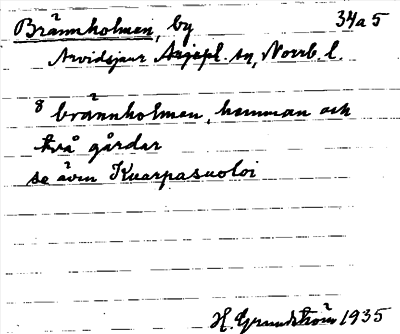 Brännholmen, by 34a5
Arvidsjaur Arjepl. sn, Norrb. l.
8 brännholmen, hemman och
två gårdar
se även Kuarpasuoloi
H. Grundström 1935